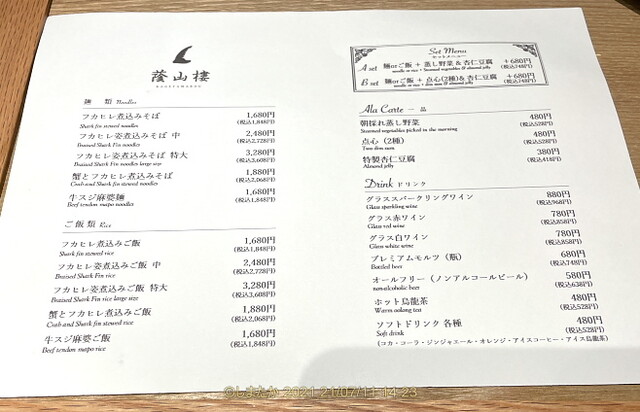 蔭山樓
麺 類 Noodles
フカヒレ煮込みそば 1,680円
Shark fin stewed noodles (税込1,848円)
フカヒレ姿煮込みそば 中 2,480円
Braised Shark Fin noodles (税込2,728円)
フカヒレ姿煮込みそば 特大 3,280円
Braised Shark Fin noodles large size (税込3,608円)
蟹とフカヒレ煮込みそば 1,880円
Crab and Shark fin stewed noodles (税込2,068円)
牛スジ麻婆麺 1,680円
Beef tendon mapo noodles (税込1,848円)
ご飯類 Rice
フカヒレ煮込みご飯 1,680円
Shark fin stewed rice (税込1,848円)
フカヒレ姿煮込みご飯 中 2,480円
Braised Shark Fin rice (税込2,728円)
フカヒレ姿煮込みご飯 特大 3,280円
Braised Shark Fin rice large size (税込3,608円)
蟹とフカヒレ煮込みご飯 1,880円
Crab and Shark fin stewed rice (税込2,068円)
牛スジ麻婆ご飯 1,680円
Beef tendon mapo rice (税込1,848円)
Set Menu
セットメニュー
A set 麺orご飯 + 蒸し野菜 & 杏仁豆腐 +680円
noodle or rice + Steamed vegetables & almond jelly (税込748円)
B set 麺orご飯 + 点心(2種)& 杏仁豆腐 +680円
noodle or rice + dim sum & almond jelly (税込748円)
Ala Carte 一 品
朝採れ蒸し野菜 480円
Steamed vegetables picked in the morning (税込528円)
点心 (2種) 480円
Two dim sum (税込528円)
特製杏仁豆腐 380円
Almond jelly (税込418円)
Drink ドリンク
グラススパークリングワイン 880円
Glass sparkling wine (税込968円)
グラス赤ワイン 780円
Glass red wine (税込858円)
グラス白ワイン 780円
Glass white wine (税込858円)
プレミアムモルツ (瓶) 680円
Bottled beer (税込748円)
オールフリー (ノンアルコールビール) 580円
nonalcoholic beer (税込638円)
ホット烏龍茶 480円
Warm oolong tea (税込528円)
ソフトドリンク 各種 480円
Soft drink (税込528円)
(コカ・コーラ・ジンジャエール・オレンジ・アイスコーヒー・アイス烏龍茶)
©しまたか 2021 21/07/11 14:23